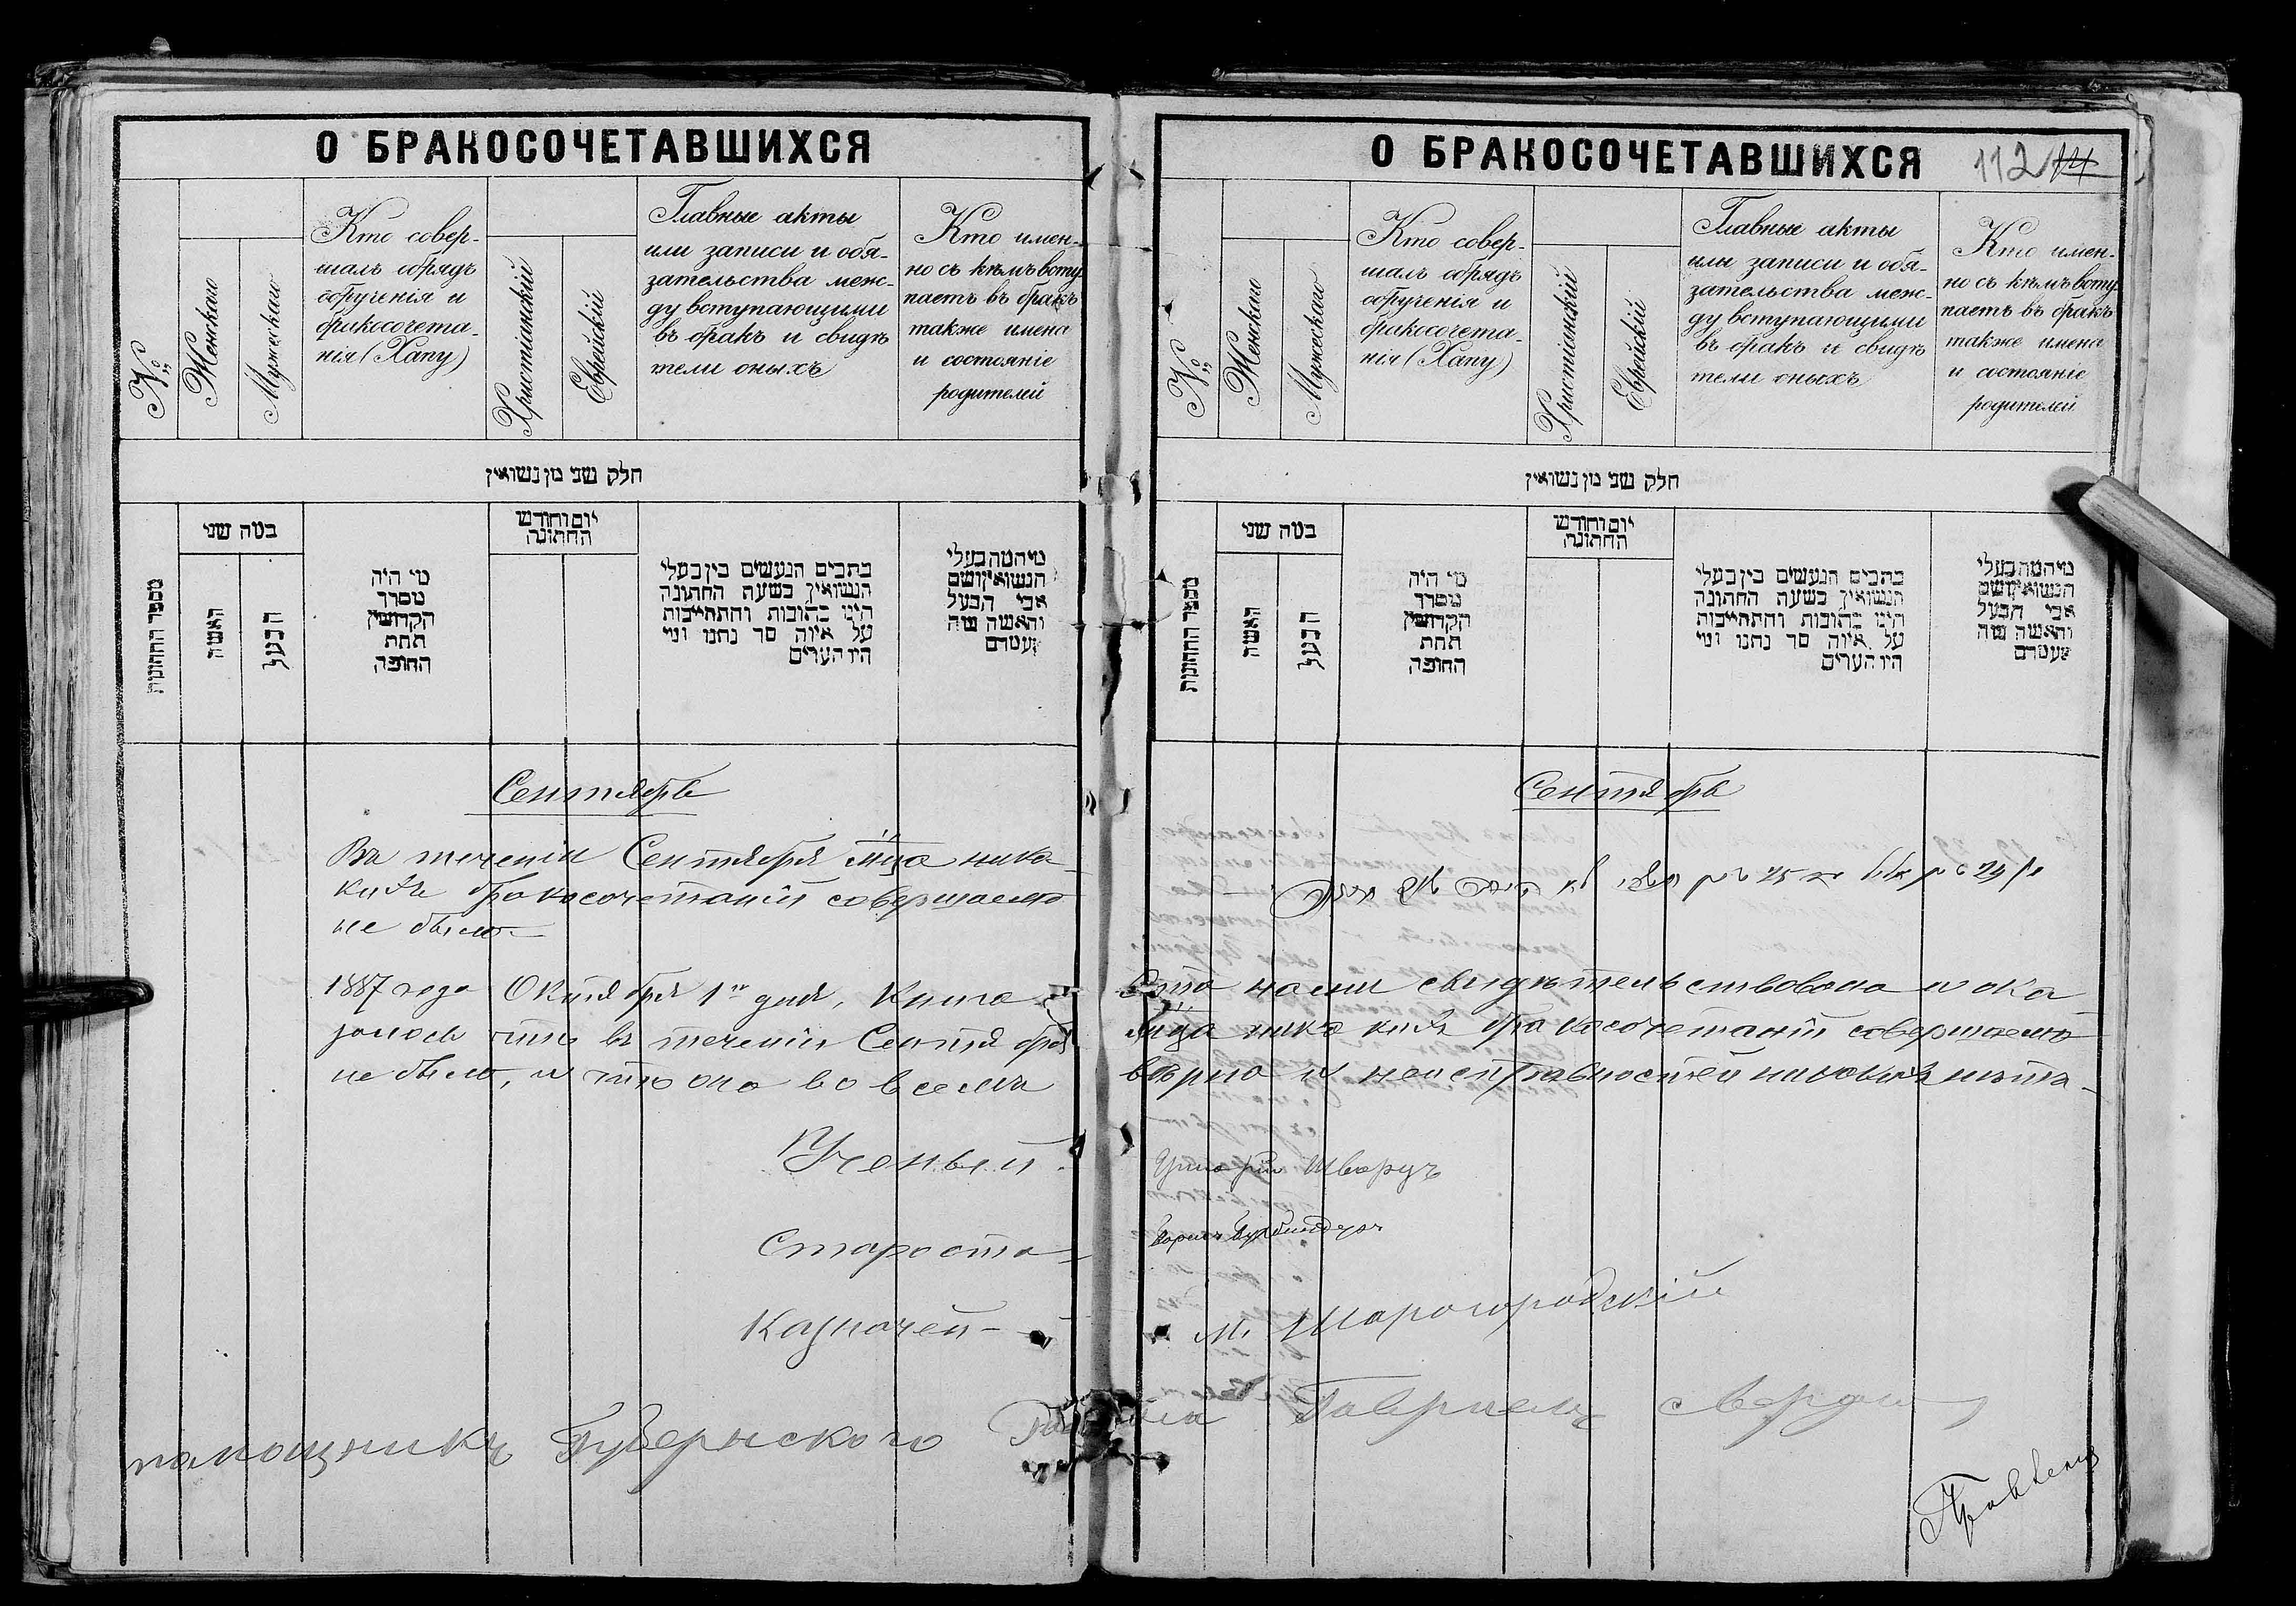 О БРАКОСОЧЕТАВШИХСЯ
№
Женскаго
Мужескаго
Кто совер-
шалъ обрядъ
обрученія и
бракосочета-
нія (Хапу)
Христіанскій
Еврейскій
Главные акты
или записи и обя-
зательства меж-
ду вступающими
въ бракъ и свидѣ
тели оныхъ
Кто имен-
но съ кѣмъ всту-
паетъ въ бракъ
также имена
и состояніе
родителей
חלק שני מן נשואין
מספר החתונות
במה שני
האשה
הבעל
מי היה
מסדר
הקדושין
תחת
החופה
יום וחודש
החתונה
כתבים הנעשים בין בעלי
הנשואין בשעת החתונה
היינו כתובות והתחייבות
על איזה סך נתנו ומי
היו העדים
מי המה בעלי
הנשואין ושם
אבי הבעל
והאשה מה
מעמדם
Сентябрь
Въ теченіи Сентября м-ца ника-
кихъ бракосочетаній совершаемо
не было
1887 года Октября 1го дня, Книга
залось что въ теченіи Сентября
не было, и что она во всемъ
Ученый
Староста
Казначей
помощникъ Губернского
О БРАКОСОЧЕТАВШИХСЯ
112
№
Женскаго
Мужескаго
Кто совер-
шалъ обрядъ
обрученія и
бракосочета-
нія (Хапу)
Христіанскій
Еврейскій
Главные акты
или записи и обя-
зательства меж-
ду вступающими
въ бракъ и свидѣ
тели оныхъ
Кто имен-
но съ кѣмъ всту-
паетъ въ бракъ
также имена
и состояніе
родителей
חלק שני מן נשואין
מספר החתונות
במה שני
האשה
הבעל
מי היה
מסדר
הקדושין
תחת
החופה
יום וחודש
החתונה
כתבים הנעשים בין בעלי
הנשואין בשעת החתונה
היינו כתובות והתחייבות
על איזה סך נתנו ומי
היו העדים
מי המה בעלי
הנשואין ושם
אבי הבעל
והאשה מה
מעמדם
Сентябрь
Эта нами свидѣтельствована и ока
м-ца никакихъ бракосочетаній совершаемо
вѣрно и неисправностей никакихъ нѣтъ
Шварцъ
М. Шарогородскій
Гавриелъ